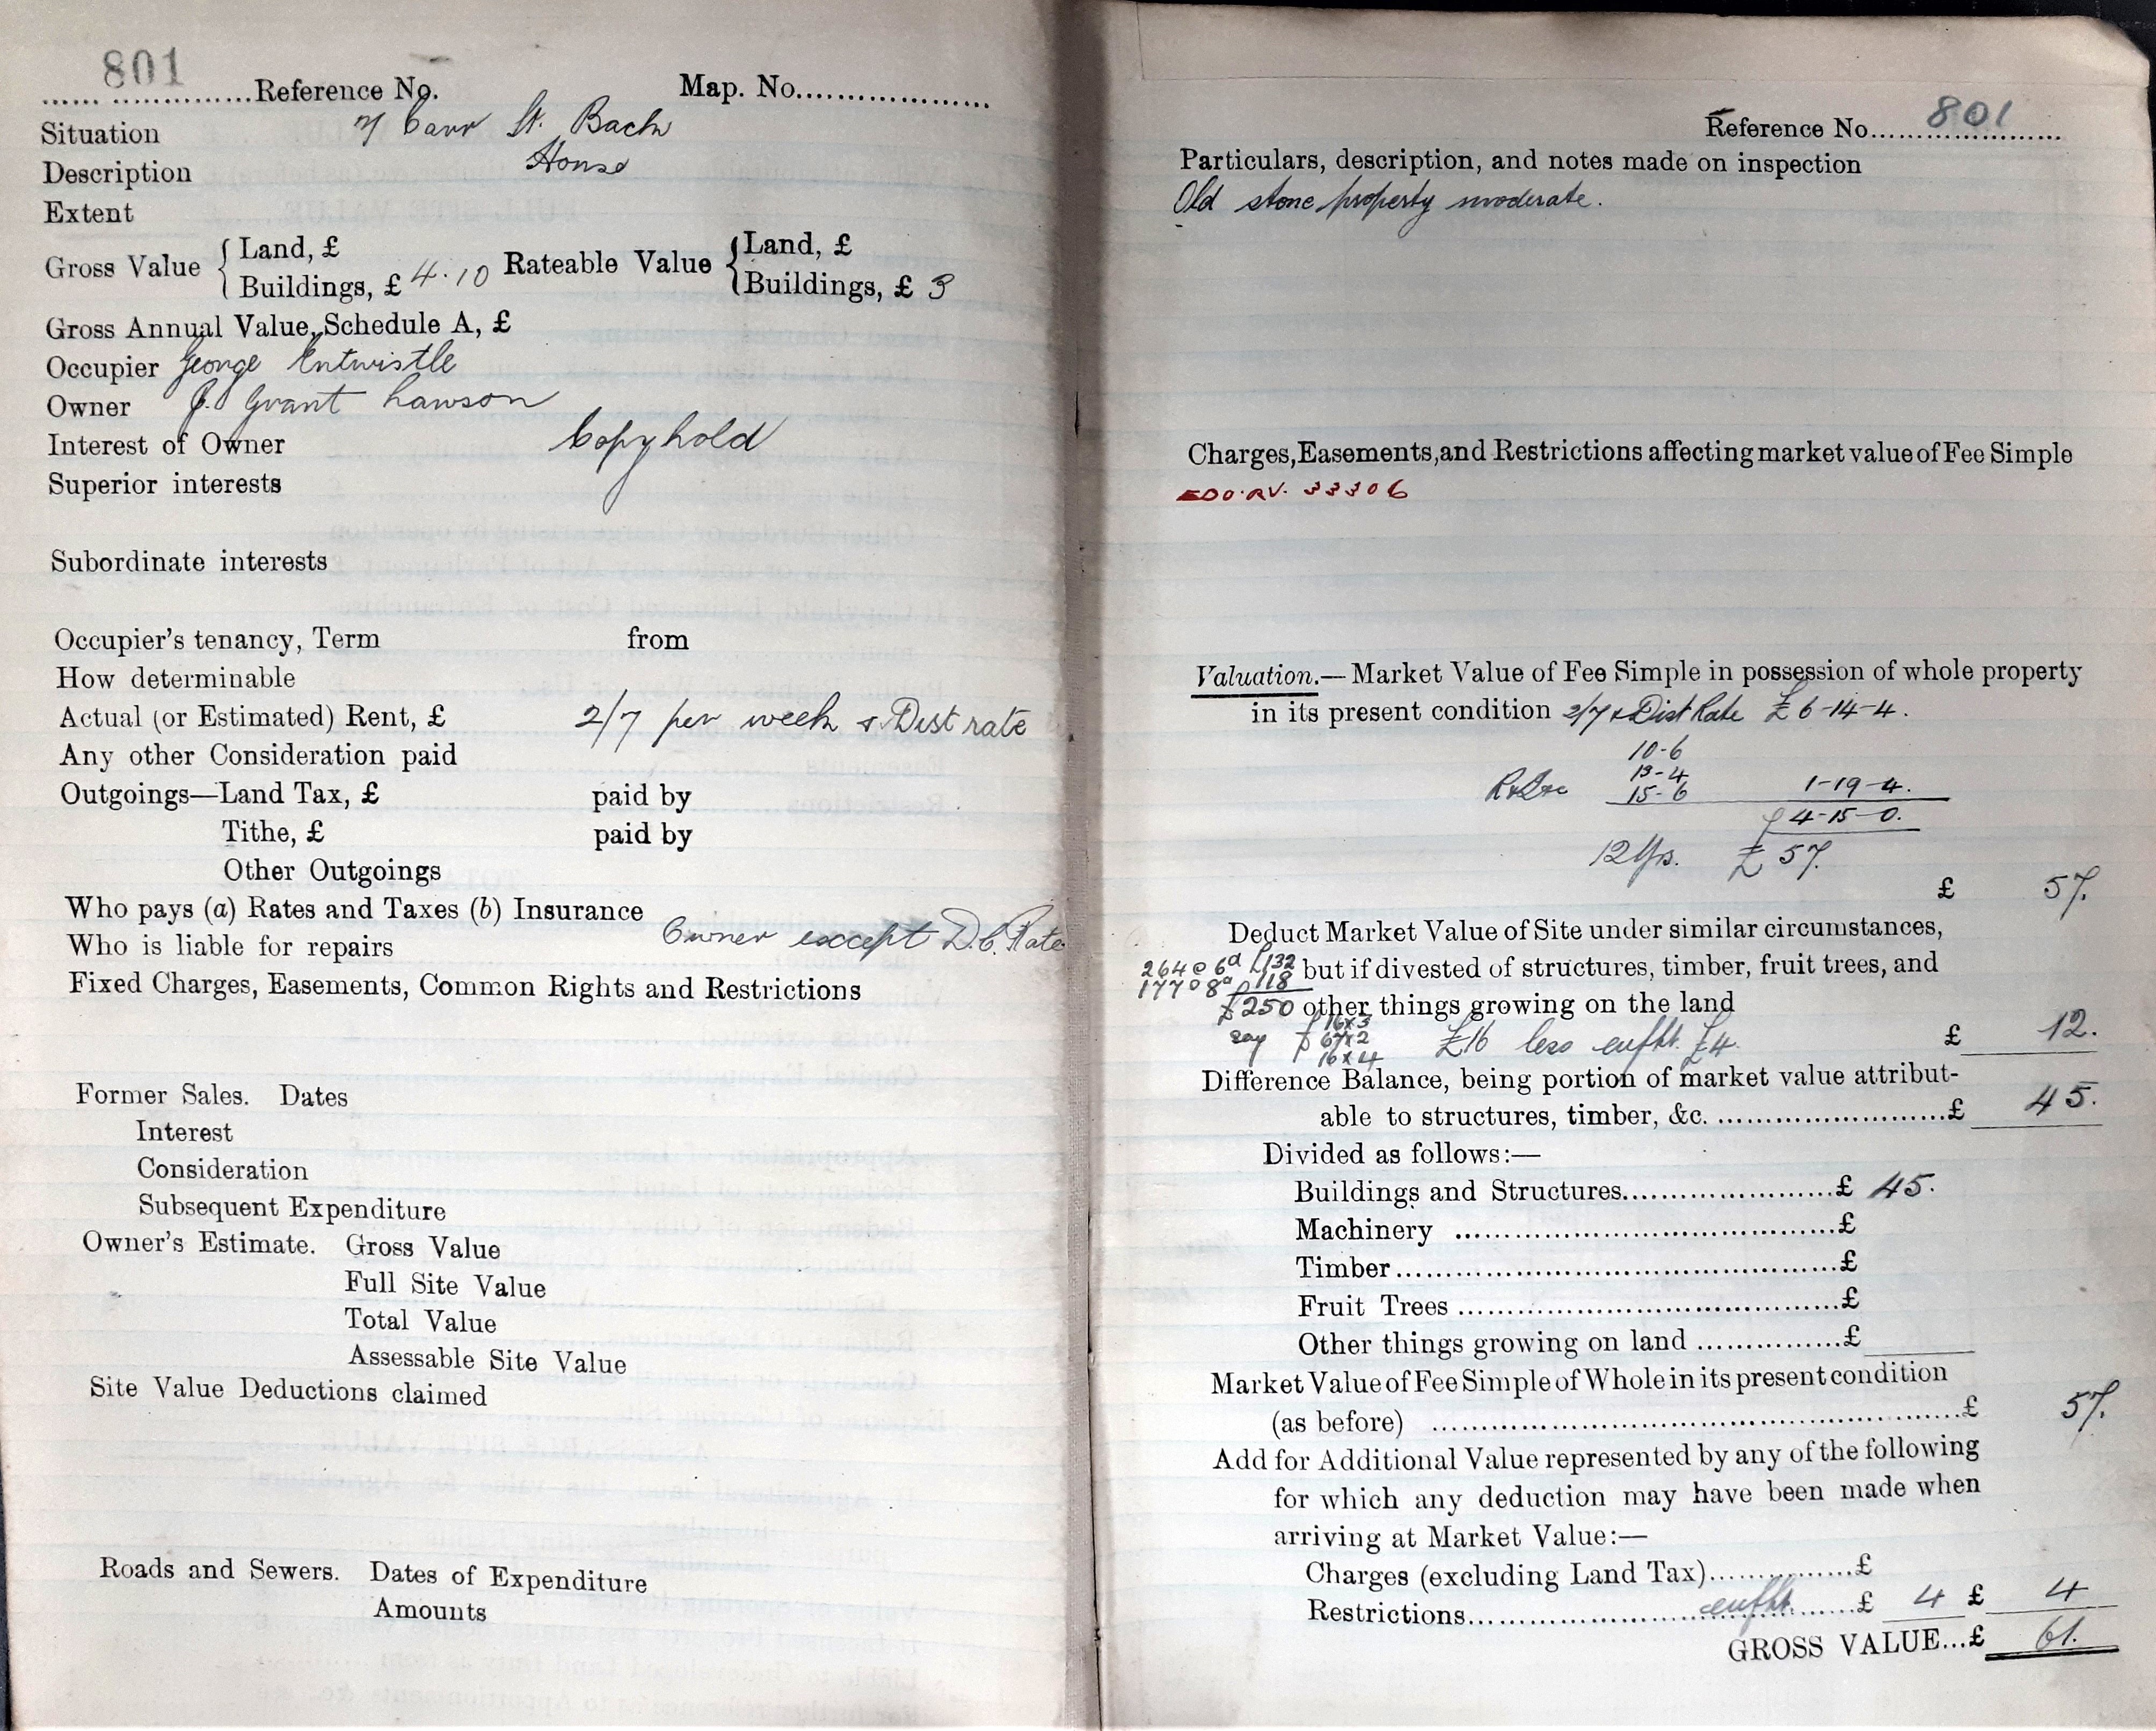 801
Reference No. Map. No.
Situation 7 Carr St. Back
Description House
Extent
Gross Value { Land, £ Rateable Value { Land, £
Buildings, £ 4.10 Buildings, £ 3
Gross Annual Value, Schedule A, £
Occupier George Entwistle
Owner J. Grant Lawson
Interest of Owner Copyhold
Superior interests
Subordinate interests
Occupier's tenancy, Term from
How determinable
Actual (or Estimated) Rent, £ 2/7 per week & Dist rate
Any other Consideration paid
Outgoings—Land Tax, £ paid by
Tithe, £ paid by
Other Outgoings
Who pays (a) Rates and Taxes (b) Insurance
Who is liable for repairs Owner except D.C. Rate
Fixed Charges, Easements, Common Rights and Restrictions
Former Sales. Dates
Interest
Consideration
Subsequent Expenditure
Owner's Estimate. Gross Value
Full Site Value
Total Value
Assessable Site Value
Site Value Deductions claimed
Roads and Sewers. Dates of Expenditure
Amounts
Reference No. 801
Particulars, description, and notes made on inspection
Old stone property moderate.
Charges, Easements, and Restrictions affecting market value of Fee Simple
EDO. RV. 33306
Valuation.— Market Value of Fee Simple in possession of whole property
in its present condition 2/7 & Dist Rate £6-14-4.
10-6
13-4
15-6 1-19-4.
£4-15-0.
12 Yrs. £57.
£ 57.
Deduct Market Value of Site under similar circumstances,
264 @ 6d £132 but if divested of structures, timber, fruit trees, and
177 @ 8d 118
£250 other things growing on the land
say £ 16 x 3
67 x 2 £16 less enfht. £4. £ 12.
16 x 4
Difference Balance, being portion of market value attribut-
able to structures, timber, &c. £ 45.
Divided as follows:—
Buildings and Structures £ 45.
Machinery £
Timber £
Fruit Trees £
Other things growing on land £
Market Value of Fee Simple of Whole in its present condition
(as before) £ 57.
Add for Additional Value represented by any of the following
for which any deduction may have been made when
arriving at Market Value:—
Charges (excluding Land Tax) £
Restrictions enfht. £ 4 £ 4
GROSS VALUE...£ 61.